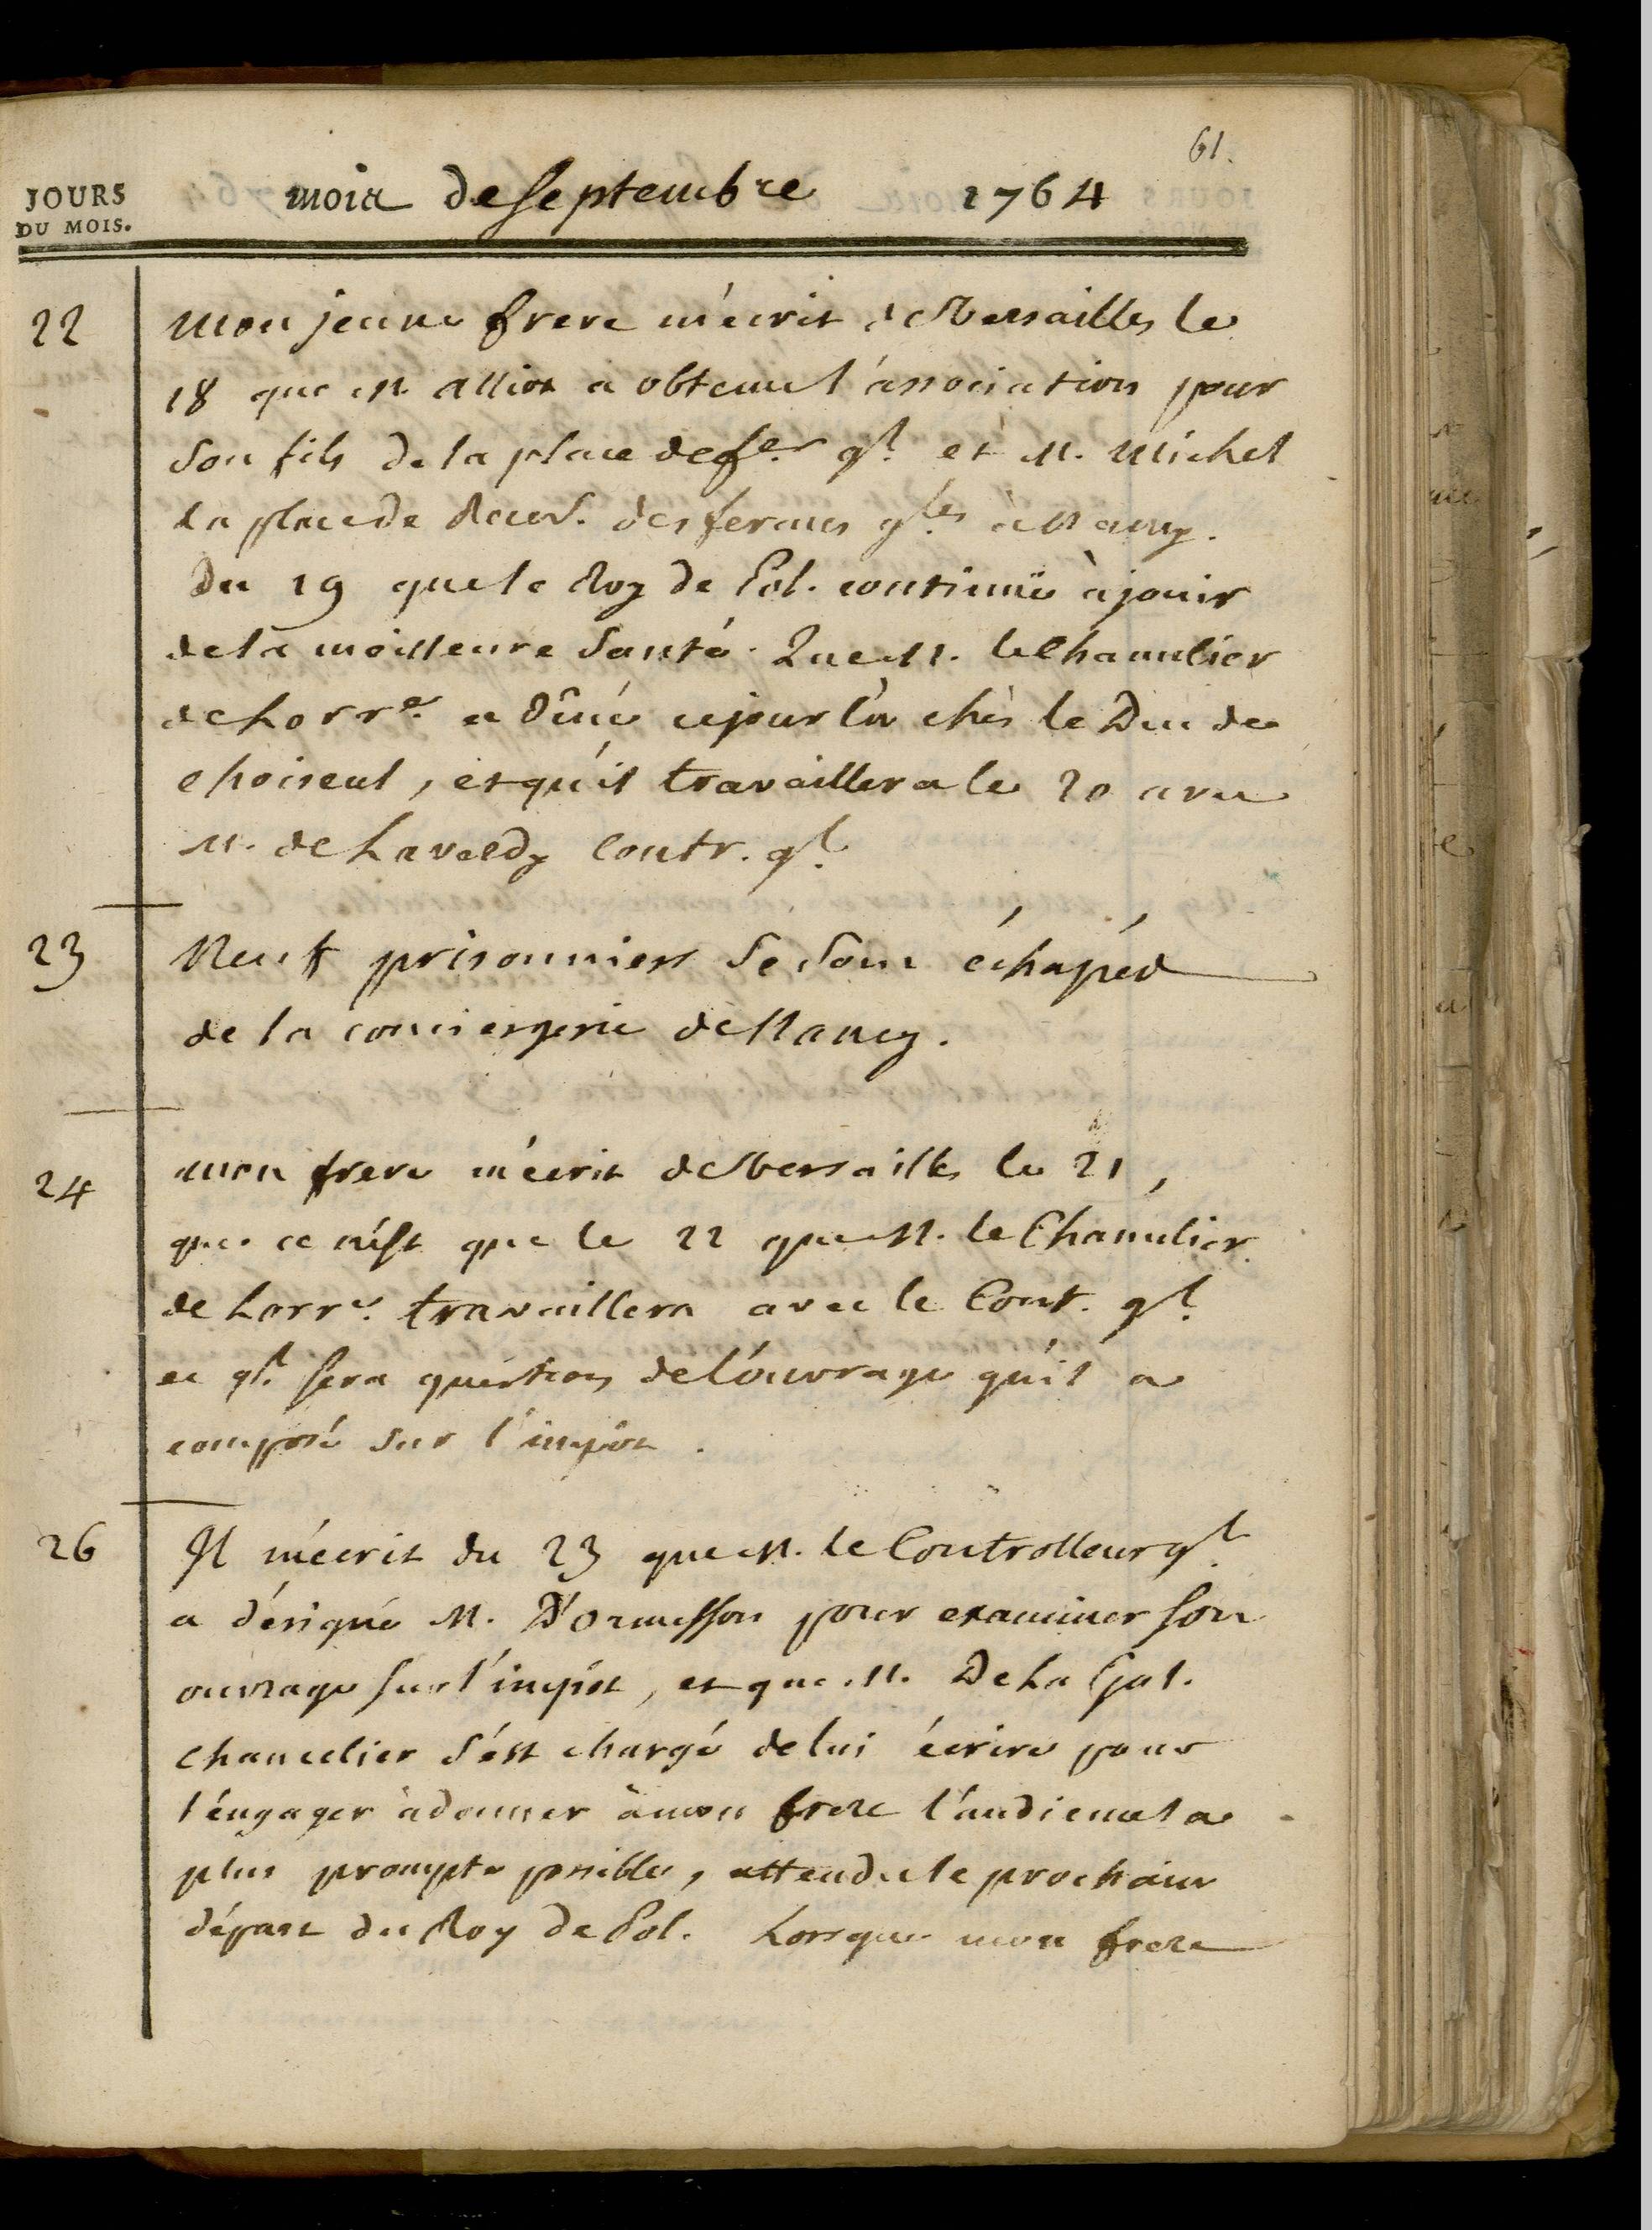 61.
JOURS
DU MOIS.
mois de septembre 1764
22
Mon jeune frere m'ecrit de Versailles le
18 que M. alliot a obtenu l'association pour
son fils de la place de fer. gl. et M. Michel
la place de Recev. des fermes gles. à Nancy.
Du 19 que le Roy de Pol. continuë à jouir
de la meilleure santé. Que M. le Chancelier
de Lorre. a dîné ce jour là chès le Duc de
choiseul, et qu'il travaillera le 20 avec
M. de Laverdy Contr. gl.
23
Neuf prisonniers se sont échapés
de la conciergerie de Nancy.
24
mon frere m'ecrit de Versailles le 21,
que ce n'est que le 22 que M. le Chancelier
de Lorre. travaillera avec le Cont. gl.
et ql. sera question de l'ouvrage qu'il a
composé sur l'impôt.
26
Il m'écrit du 23 que M. le Controlleur gl.
a désigné M. D'ormesson pour examiner son
ouvrage sur l'impôt, et que M. De La Gal.
chancelier s'est chargé de lui écrire pour
l'engager à donner à mon frere l'audience la
plus prompte possible, attendu le prochain
départ du Roy de Pol. Lorsque mon frere